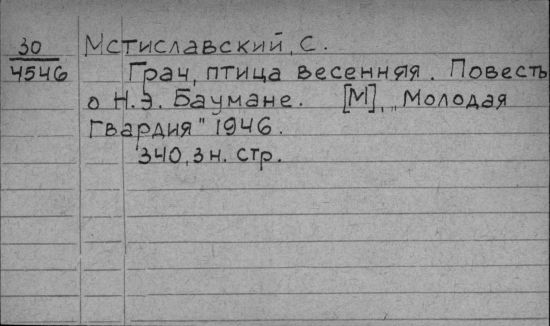 30
4546
Мстиславский, С.
Грач, птица весенняя. Повесть
о Н.Э. Баумане. [М], „Молодая
Гвардия" 1946.
340, 3 н. стр.